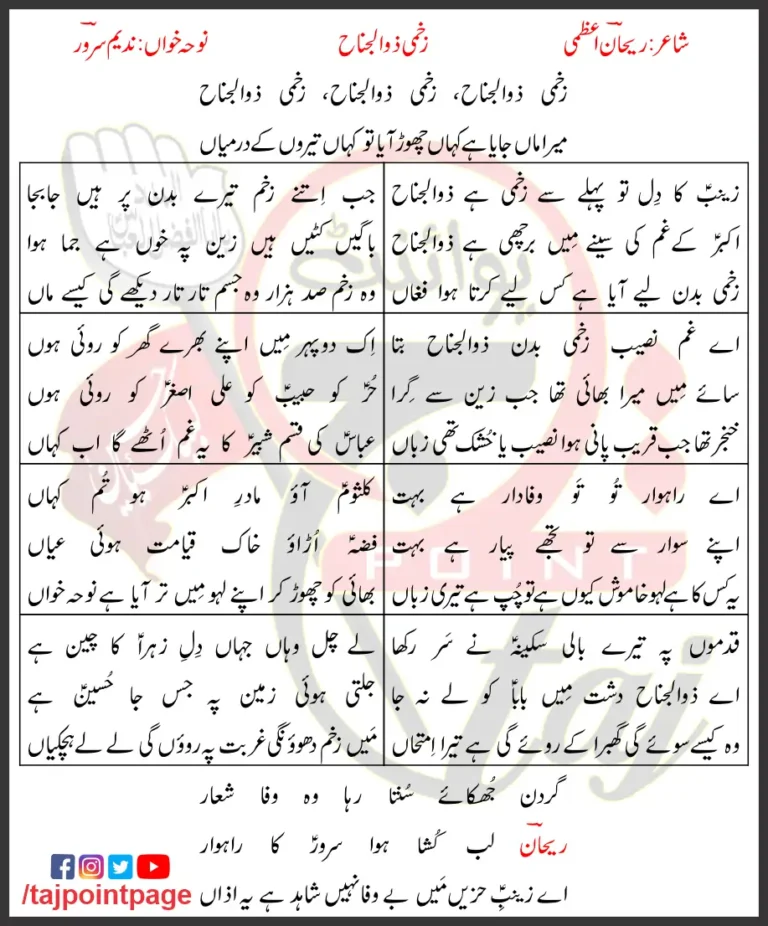 شاعر: ریحان اعظمی
زخمی ذوالجناح
نوحہ خواں: ندیم سرور
زخمی ذوالجناح، زخمی ذوالجناح، زخمی ذوالجناح
میرا ماں جایا ہے کہاں چھوڑ آیا تو کہاں تیروں کے درمیاں
زینبؑ کا دِل تو پہلے سے زخمی ہے ذوالجناح
اکبرؑ کے غم کی سینے مِیں برچھی ہے ذوالجناح
زخمی بدن لیے آیا ہے کس لیے کرتا ہوا فغاں
جب اِتنے زخم تیرے بدن پر ہیں جابجا
باگیں کٹیں ہیں زین پہ خوں ہے جما ہوا
وہ زخم صد ہزار وہ جسم تار تار دیکھے گی کیسے ماں
اے غم نصیب زخمی بدن ذوالجناح بتا
سائے مِیں میرا بھائی تھا جب زین سے گِرا
خنجر تھا جب قریب پانی ہوا نصیب یا خُشک تھی زباں
اِک دوپہر مِیں اپنے بھرے گھر کو روئی ہوں
حُرؑ کو حبیبؑ کو علی اصغرؑ کو روئی ہوں
عباسؑ کی قسم شبیرؑ کا یہ غم اُٹھے گا اب کہاں
اے راہوار تُو تَو وفادار ہے بہت
اپنے سوار سے تو تجھے پیار ہے بہت
یہ کس کا ہے لہو خاموش کیوں ہے تو چُپ ہے تیری زباں
کلثومؑ آؤ مادرِ اکبرؑ ہو تُم کہاں
فضہؑ اُڑاؤ خاک قیامت ہوئی عیاں
بھائی کو چھوڑ کر اپنے لہو مِیں تر آیا ہے نوحہ خواں
قدموں پہ تیرے بالی سکینہؑ نے سَر رکھا
اے ذوالجناح دشت مِیں باباؑ کو لے نہ جا
وہ کیسے سوئے گی گھبرا کے روئے گی ہے تیرا اِمتحاں
لے چل وہاں جہاں دلِ زہراؑ کا چین ہے
جلتی ہوئی زمین پہ جس جا حُسینؑ ہے
مَیں زخم دھوؤنگی غربت پہ روؤں گی لے لے ہچکیاں
گردن جُھکائے سُنتا رہا وہ وفا شعار
ریحان لب کُشا ہوا سرورؑ کا راہوار
اے زینبِؑ حزیں مَیں بے وفا نہیں شاہد ہے یہ اذاں
/tajpointpage
پوائنٹ
POINT
taj